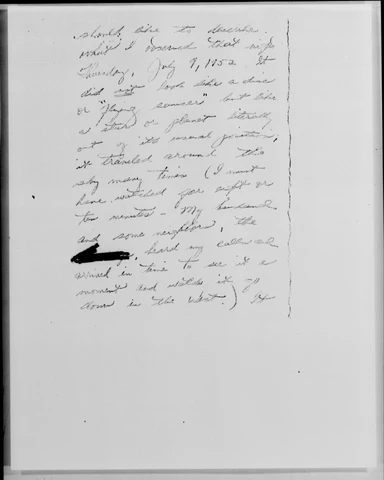 should like to describe
what I observed that night
Thursday, July 9, 1952. It
did not look like a disc
or "flying saucer" but like
a star or planet literally
out of its usual position,
it traveled around the
sky many times (I must
have watched for eight or
ten minutes - My husband
and some neighbors, the
heard my calls and
arrived in time to see it a
moment and watch it go
down in the west.) It